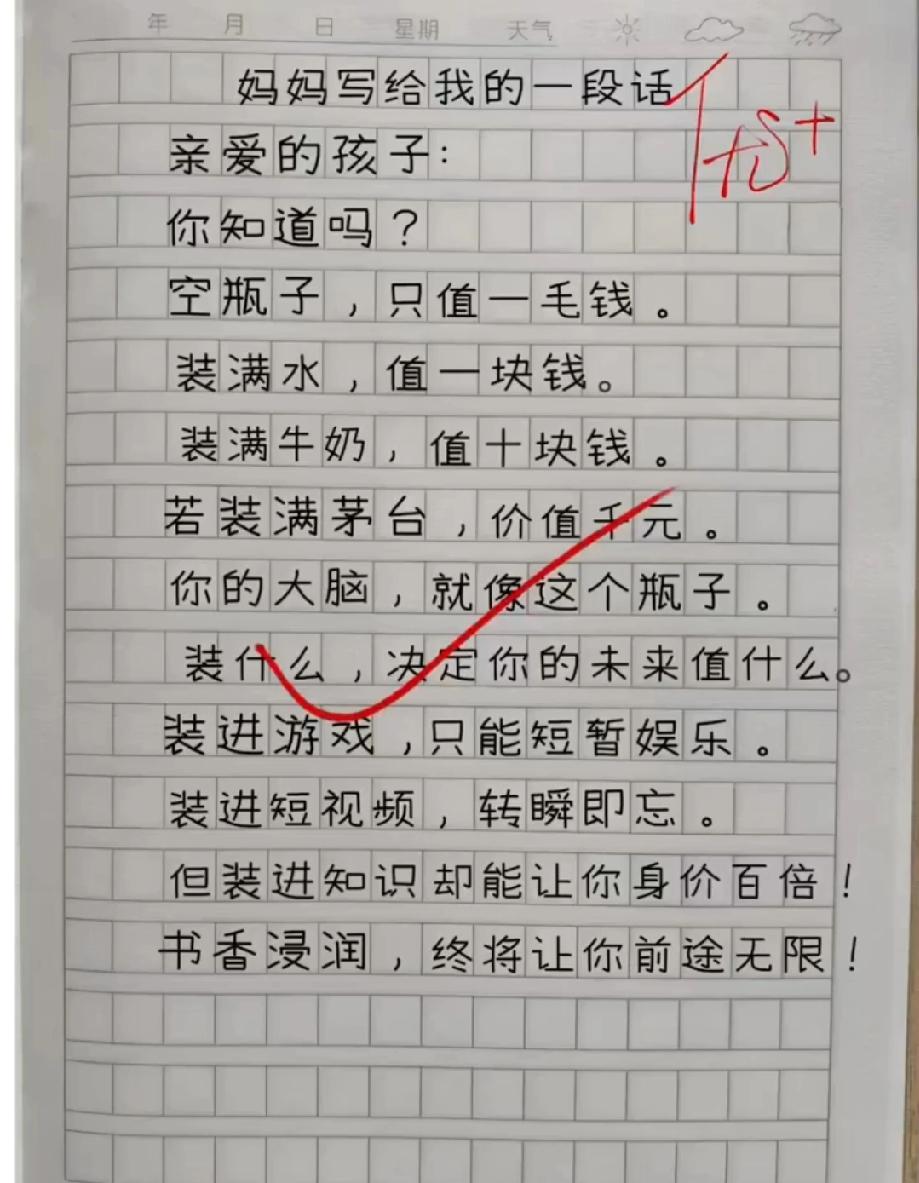 年 月 日 星期 天气
妈妈写给我的一段话
优+
亲爱的孩子：
你知道吗？
空瓶子，只值一毛钱。
装满水，值一块钱。
装满牛奶，值十块钱。
若装满茅台，价值千元。
你的大脑，就像这个瓶子。
装什么，决定你的未来值什么。
装进游戏，只能短暂娱乐。
装进短视频，转瞬即忘。
但装进知识却能让你身价百倍！
书香浸润，终将让你前途无限！